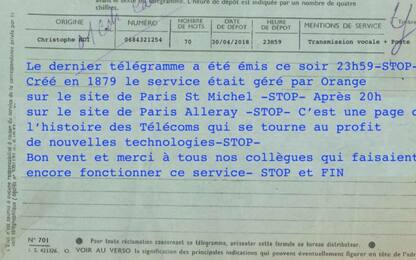 avant le texte du télégramme. L'heure de dépôt est indiquée par un nombre de quatre
chiffres.
ORIGINE
NUMÉRO
NOMBRE DE MOTS
DATE DE DÉPÔT
HEURE DE DÉPÔT
MENTIONS DE SERVICE
Christophe
0684321254
70
30/04/2018
23H59
Transmission vocale + Poste
Le dernier télégramme a été émis ce soir 23h59-STOP-
Créé en 1879 le service était géré par Orange
sur le site de Paris St Michel -STOP- Après 20h
sur le site de Paris Alleray -STOP- C'est une page d
l'histoire des Télécoms qui se tourne au profit
de nouvelles technologies-STOP-
Bon vent et merci à tous nos collègues qui faisaient
encore fonctionner ce service- STOP et FIN
N° 701
Pour toute réclamation concernant ce télégramme, présenter cette formule au bureau distributeur.
I. S. 421326. O. VOIR AU VERSO la signification des principales indications qui peuvent éventuellement figurer en tête de l'adr